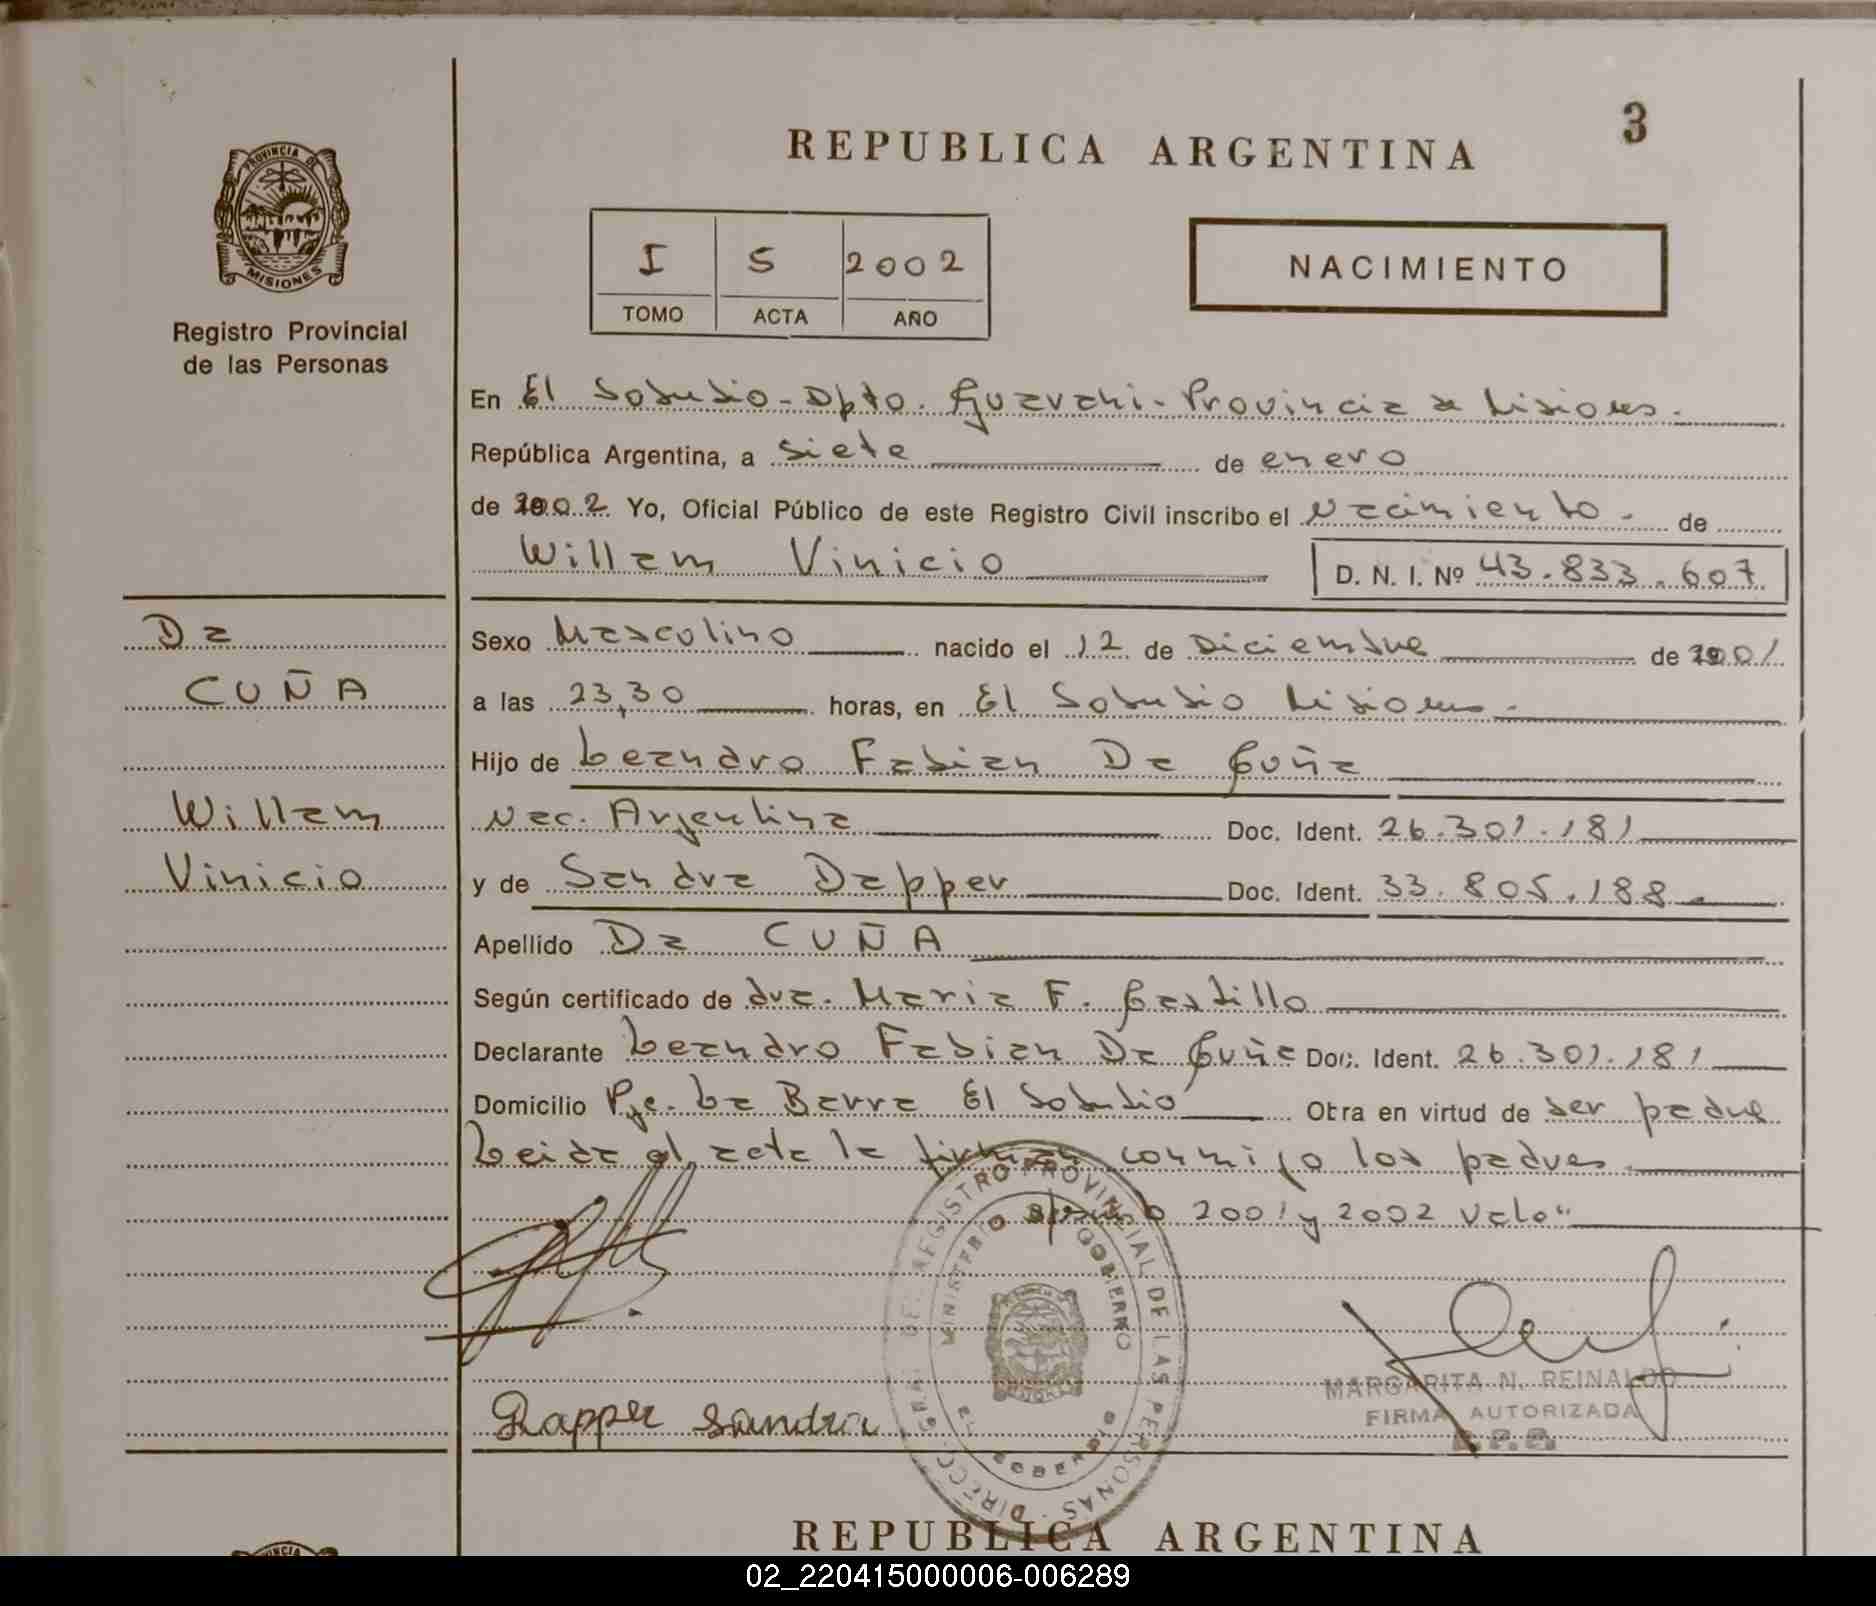 3
REPUBLICA ARGENTINA
PROVINCIA DE
MISIONES
Registro Provincial
de las Personas
I S 2002
TOMO ACTA AÑO
NACIMIENTO
En El Soberbio - Dpto. Guarani - Provincia de Misiones.
República Argentina, a siete de enero
de 2002 Yo, Oficial Público de este Registro Civil inscribo el Nacimiento - de
Willam Vinicio D. N. I. Nº 43.833.607
Da
CUÑA
Willam
Vinicio
Sexo Masculino nacido el 12 de Diciembre de 2001
a las 23,30 horas, en El Soberbio Misiones -
Hijo de Leandro Fabian Da Cuña
Nac. Argentina Doc. Ident. 26.301.181
y de Sandra Dapper Doc. Ident. 33.805.188
Apellido Da CUÑA
Según certificado de dra. Maria F. Castillo
Declarante Leandro Fabian Da Cuña Doc. Ident. 26.301.181
Domicilio Pje. La Barra El Soberbio Obra en virtud de ser padre
Leida el acta la firman conmigo los padres
2001 y 2002 Vale"
DIRECC. GRAL. DEL REGISTRO PROVINCIAL DE LAS PERSONAS
MINISTERIO DE GOBIERNO
EL SOBERBIO
MARGARITA N. REINALDO
FIRMA AUTORIZADA
R.P.P.
Dapper Sandra
REPUBLICA ARGENTINA
02_220415000006-006289